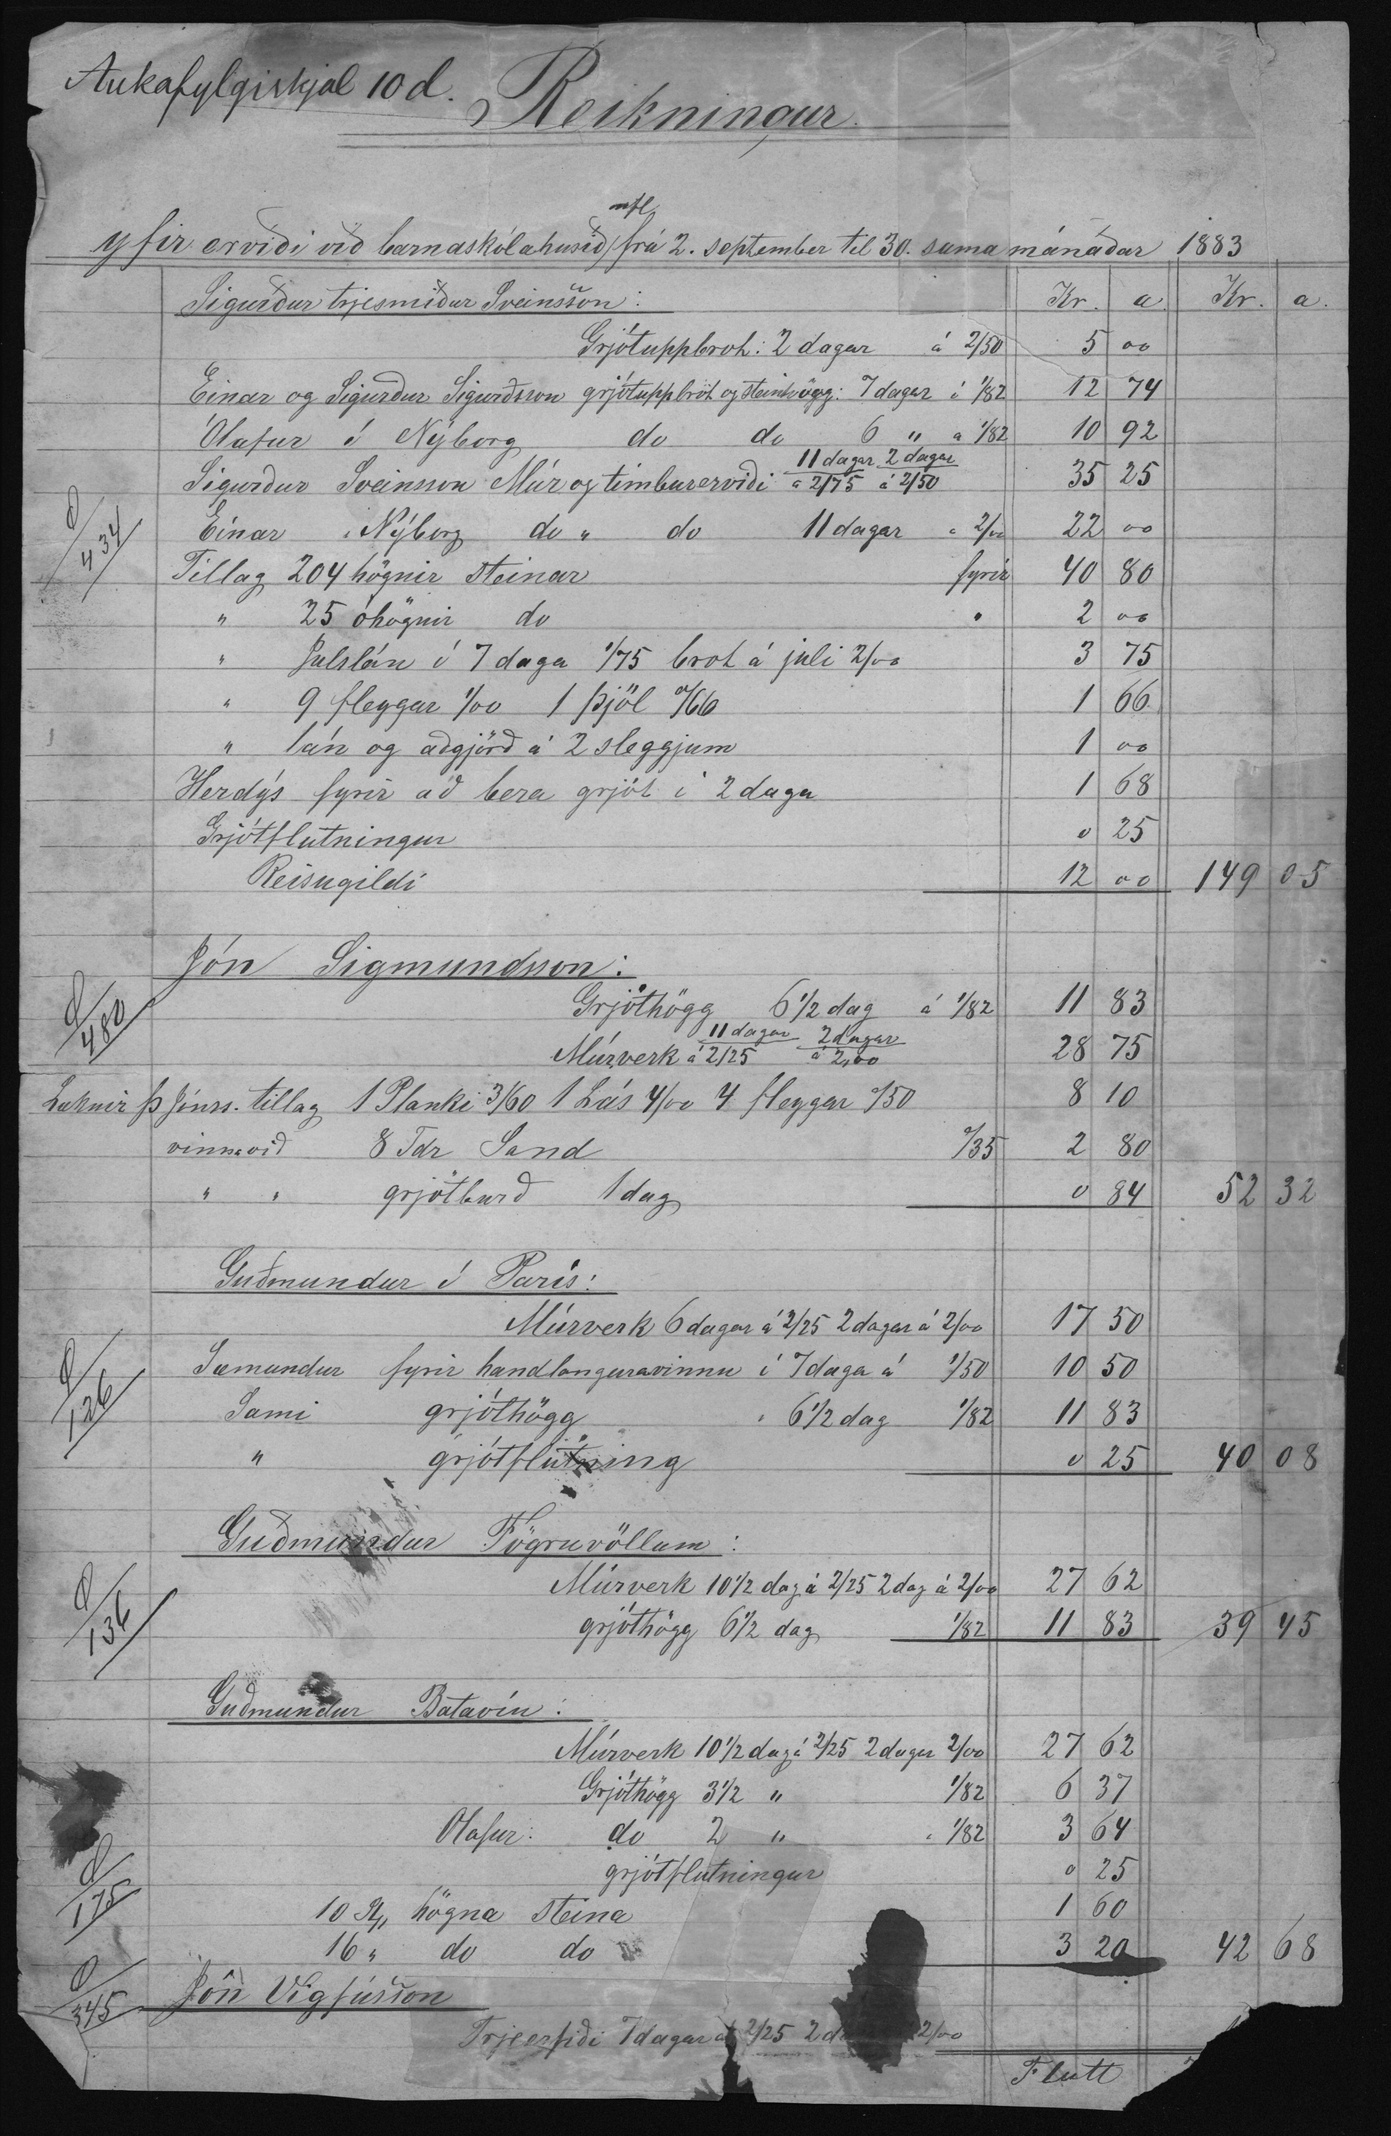 Aukafylgiskjal 10 d.
Reikningur
mfl
yfir erviði við barnaskólahusið frá 2. september til 30. sama mánaðar 1883
Sigurður trjesmiður Sveinsson: Kr. a. Kr. a.
Grjótuppbrot: 2 dagar á 2/50 5 00
Einar og Sigurður Sigurðsson grjótuppbrot og steinhögg: 7 dagar á 1/82 12 74
Ólafur í Nýborg do do 6 " á 1/82 10 92
Sigurður Sveinsson Múr og timburerviði 11 dagar á 2/75 2 dagar á 2/50 35 25
0/434
Einar " Nýborg do " do 11 dagar " 2/00 22 00
Tillag 204 högnir steinar fyrir 40 80
" 25 óhögnir do " 2 00
" Julslán í 7 daga 1/75 brot á juli 2/00 3 75
" 9 fleygar 1/00 1 þjöl 0/66 1 66
" lán og aðgjörð á 2 sleggjum 1 00
Herdýs fyrir að bera grjót í 2 daga 1 68
Grjótflutningur 0 25
Reisugildi 12 00 149 05
Jón Sigmundsson:
0/480
Grjóthögg 6 1/2 dag á 1/82 11 83
Múrverk 11 dagar á 2/25 2 dagar á 2,00 28 75
Læknir Þ Jónss. tillag 1 Planki 3/60 1 Lás 4/00 4 fleygar 0/50 8 10
vinna við 8 Tdr Sand 0/35 2 80
" " grjótburð 1 dag 0 84 52 32
Guðmundur í París:
Múrverk 6 dagar á 2/25 2 dagar á 2/00 17 50
0/126
Sæmundur fyrir handlangaravinnu í 7 daga á 1/50 10 50
Sami grjóthögg " 6 1/2 dag 1/82 11 83
" grjótflutning 0 25 40 08
Guðmundur Fögruvöllum:
0/136
Múrverk 10 1/2 dag á 2/25 2 dag á 2/00 27 62
grjóthögg 6 1/2 dag 1/82 11 83 39 45
Guðmundur Batavíu:
Múrverk 10 1/2 dag á 2/25 2 dagar 2/00 27 62
Grjóthögg 3 1/2 " 1/82 6 37
Olafur: do 2 " " 1/82 3 64
0/175
grjótflutningur 0 25
10 högna steina 1 60
16 " do do 3 20 42 68
0/345
Jón Vigfússon
Trjeerfiði 7 dagar á 2/25 2 2/00
Flutt